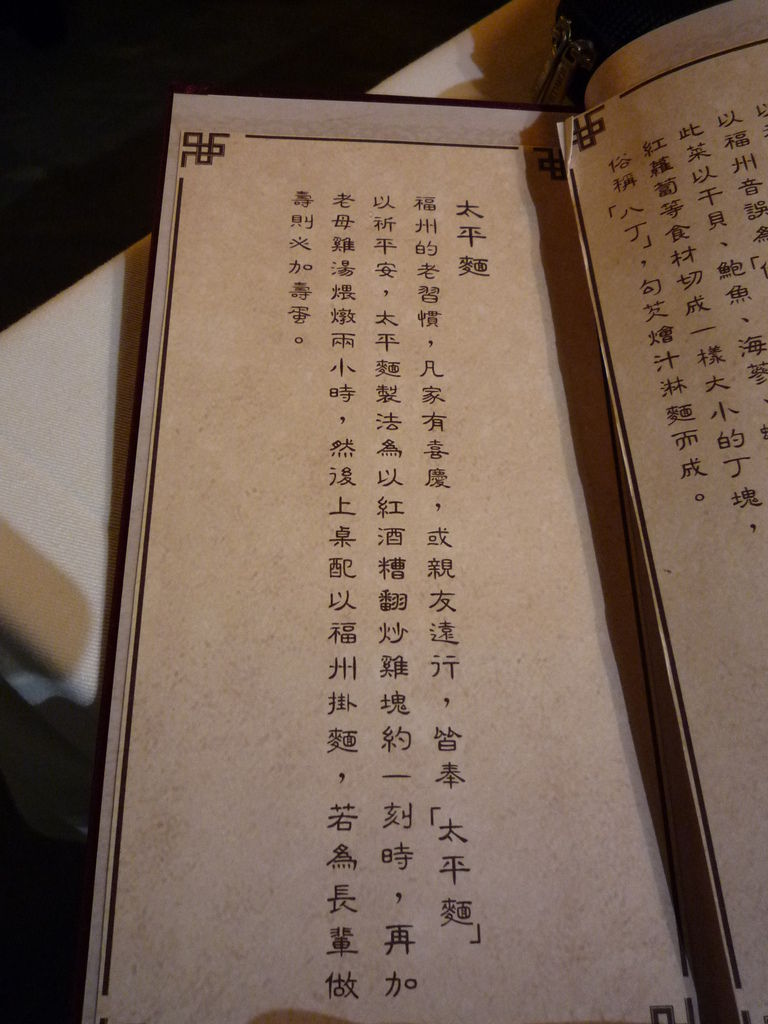 以福州音誤為「
此菜以干貝、鮑魚、海蔘、
紅蘿蔔等食材切成一樣大小的丁塊，
俗稱「八丁」，勾芡燴汁淋麵而成。
太平麵
福州的老習慣，凡家有喜慶，或親友遠行，皆奉「太平麵」
以祈平安，太平麵製法為以紅酒糟翻炒雞塊約一刻時，再加
老母雞湯煨燉兩小時，然後上桌配以福州掛麵，若為長輩做
壽則必加壽蛋。